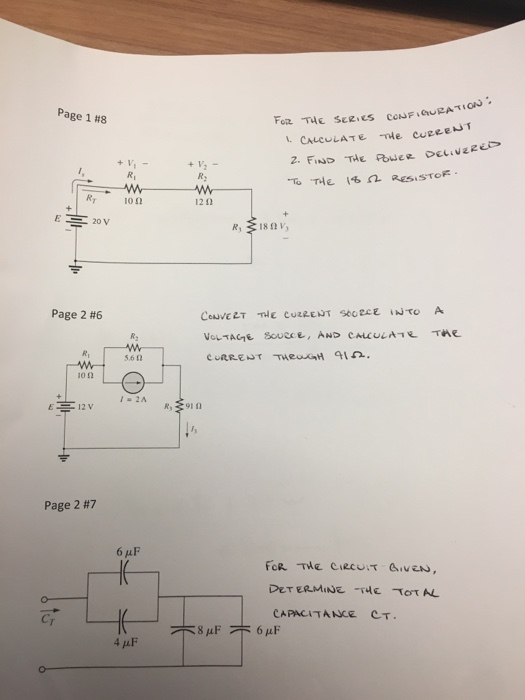 Page 1 #8
FOR THE SERIES CONFIGURATION:
1. CALCULATE THE CURRENT
2. FIND THE POWER DELIVERED
TO THE 18 Ω RESISTOR.
+ V₁ −
R₁
10 Ω
+ V₂ −
R₂
12 Ω
Iₛ
R_T
+
E
20 V
−
R₃
18 Ω
+
V₃
−
Page 2 #6
CONVERT THE CURRENT SOURCE INTO A
VOLTAGE SOURCE, AND CALCULATE THE
CURRENT THROUGH 91Ω.
R₂
5.6 Ω
R₁
10 Ω
I = 2A
+
E
12 V
−
R₃
91 Ω
I₃
Page 2 #7
FOR THE CIRCUIT GIVEN,
DETERMINE THE TOTAL
CAPACITANCE CT.
6 µF
C_T
4 µF
8 µF
6 µF